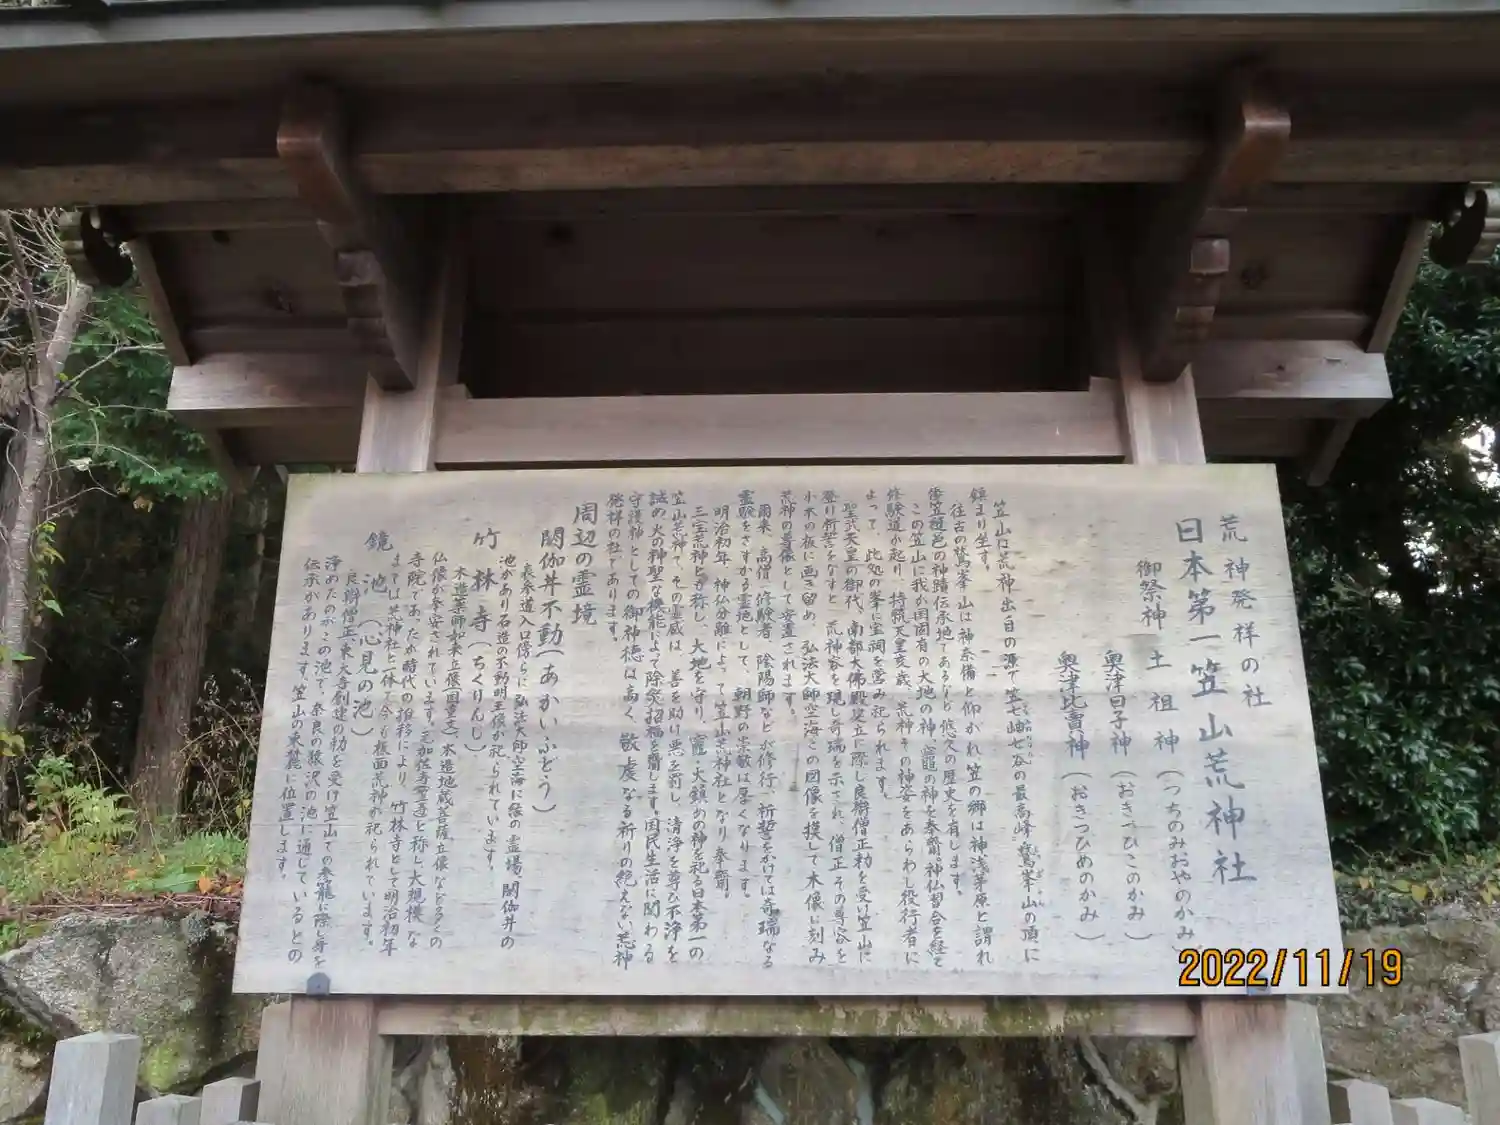 荒神発祥の社
日本第一笠山荒神社
御祭神 土祖神（つちのみおやのかみ）
奥津日子神（おきつひこのかみ）
奥津比賣神（おきつひめのかみ）
笠山は荒神出自の源で笠七岫七谷の最高峰鷲峯山の頂に
鎮まり坐す。
往古の鷲峯山は神奈備と仰がれ笠の郷は神浅茅原と謂れ
倭笠縫邑の神蹟伝承地であるなど悠久の歴史を有します。
この笠山に我が国固有の大地の神、竈の神を奉齋。神仏習合を経て
修験道が起り、持統天皇亥歳、荒神その神姿をあらわし役行者に
よって、此処の峯に宝祠を営み祀られます。
聖武天皇の御代、南都大佛殿建立に際し良辯僧正勅を受け笠山に
登り祈誓をなすと、荒神容を現し奇瑞を示され、僧正その尊容を
小木の板に画き留め、弘法大師空海この図像を摸して木像に刻み
荒神の尊像として安置されます。
爾来、高僧、修験者、陰陽師などが修行、祈誓をかけては奇瑞なる
霊験をさずかる霊地として、朝野の崇敬は厚くなります。
明治初年、神仏分離によって笠山荒神社となり奉齋。
三宝荒神とも称し、大地を守り、竈・火鎮めの神を祀る日本第一の
笠山荒神で、その霊威は、善を助け悪を罰し、清浄を尊び不浄を
誡め、火の神聖な機能によって除災招福を齎します。国民生活に関わる
守護神としての御神徳は高く、敬虔なる祈りの絶えない荒神
発祥の社であります。
周辺の霊境
閼伽井不動（あかいふどう）
表参道入口傍らに、弘法大師空海に縁の霊場、閼伽井の
池があり石造の不動明王像が祀られています。
竹林寺（ちくりんじ）
木造薬師如来立像（国重文）、木造地蔵菩薩立像など多くの
仏像が奉安されています。元伽
寺院であったが時代の推移により、竹林寺として明治初年
までは荒神社と一体で今も板面荒神が祀られています。
鏡池（心見の池）
良辯僧正、東大寺創建の勅を受け笠山での参籠に際し身を
浄めたのがこの池で、奈良の猿沢の池に通じているとの
伝承があります。笠山の東麓に位置します。
2022/11/19